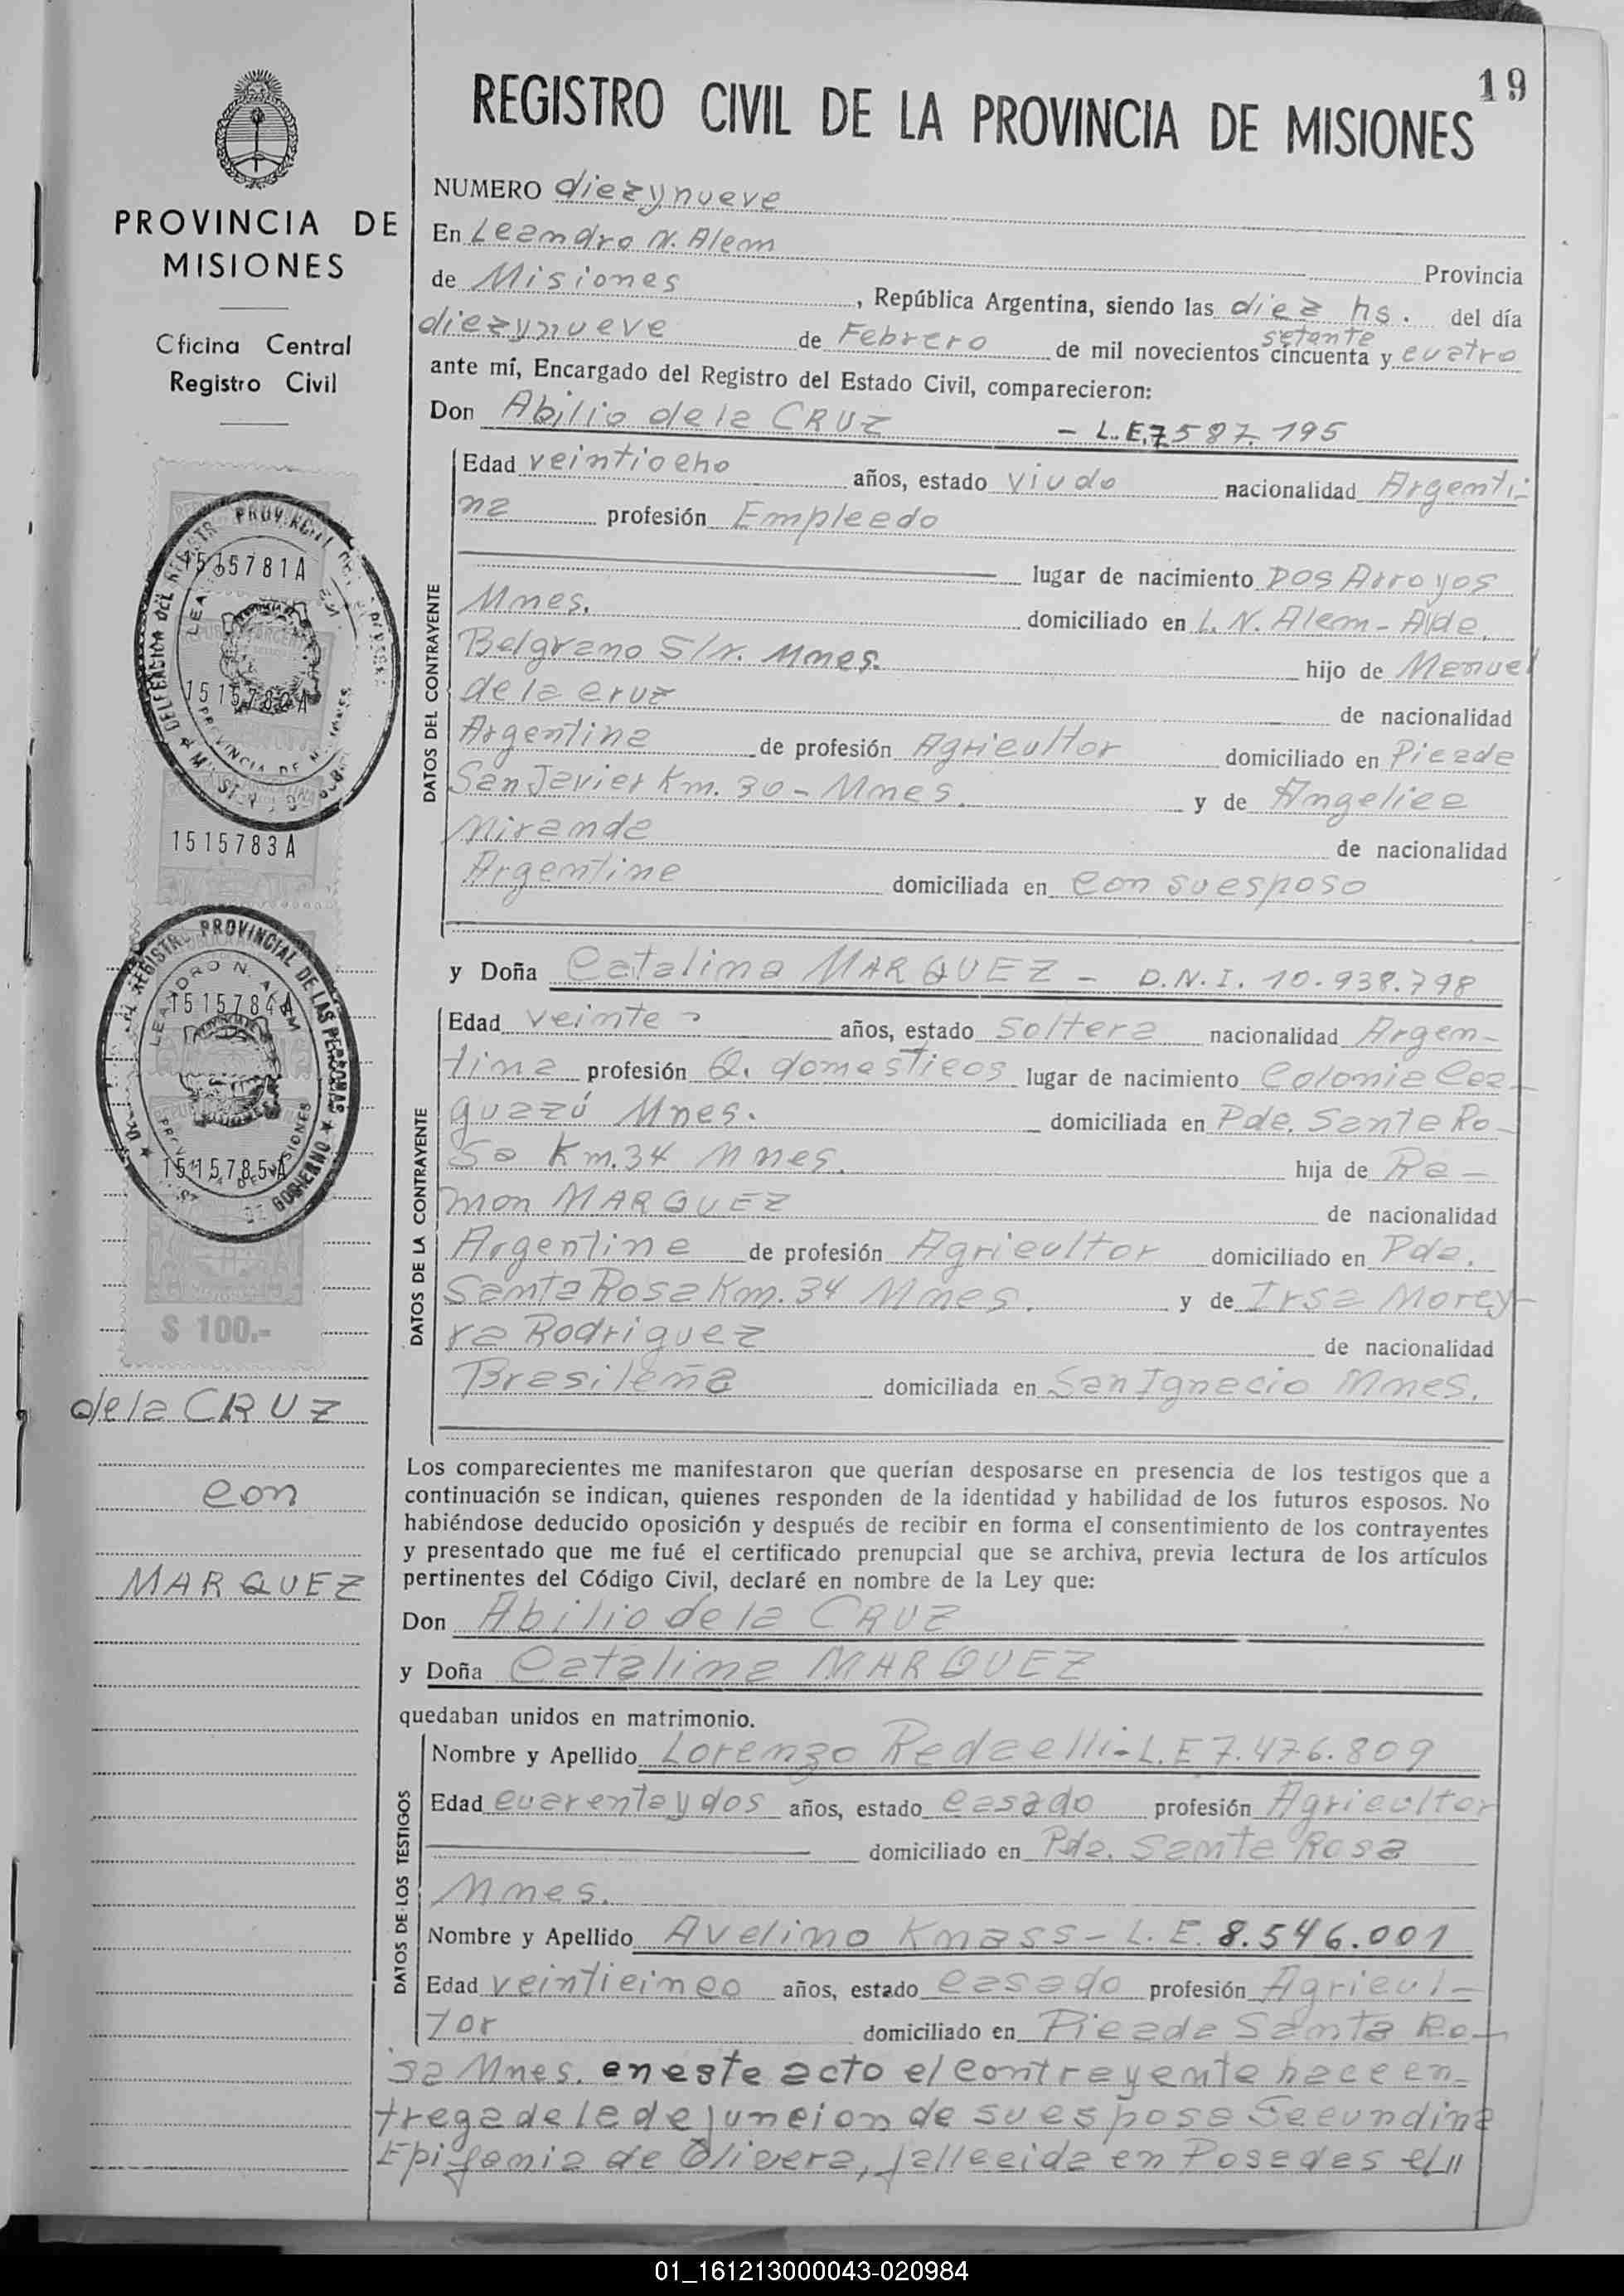 19
REGISTRO CIVIL DE LA PROVINCIA DE MISIONES
PROVINCIA DE
MISIONES
Oficina Central
Registro Civil
1515781A
1515782A
1515783A
LEANDRO N. ALEM
1515784A
1515785A
$ 100.-
de la CRUZ
con
MARQUEZ
NUMERO diezynueve
En Leandro N. Alem Provincia
de Misiones, República Argentina, siendo las diez hs. del día
setenta
diezynueve de Febrero de mil novecientos cincuenta y cuatro
ante mí, Encargado del Registro del Estado Civil, comparecieron:
Don Abilio de la CRUZ - L.E. 7587.195
DATOS DEL CONTRAYENTE
Edad veintiocho años, estado viudo nacionalidad Argenti-
na profesión Empleado
lugar de nacimiento Dos Arroyos
Mnes. domiciliado en L. N. Alem - Avda.
Belgrano S/n. Mnes. hijo de Manuel
de la cruz de nacionalidad
Argentina de profesión Agricultor domiciliado en Picada
San Javier Km. 30 - Mnes. y de Angelica
Miranda de nacionalidad
Argentina domiciliada en con su esposo
y Doña Catalina MARQUEZ - D.N.I. 10.938.798
DATOS DE LA CONTRAYENTE
Edad veinte - años, estado soltera nacionalidad Argen-
tina profesión Q. domesticos lugar de nacimiento Colonia Caa-
guazú Mnes. domiciliada en Pda. Santa Ro-
sa Km. 34 Mnes. hija de Ra-
mon MARQUEZ de nacionalidad
Argentina de profesión Agricultor domiciliado en Pda.
Santa Rosa Km. 34 Mnes. y de Irsa Morey-
ra Rodriguez de nacionalidad
Brasileña domiciliada en San Ignacio Mnes.
Los comparecientes me manifestaron que querían desposarse en presencia de los testigos que a
continuación se indican, quienes responden de la identidad y habilidad de los futuros esposos. No
habiéndose deducido oposición y después de recibir en forma el consentimiento de los contrayentes
y presentado que me fué el certificado prenupcial que se archiva, previa lectura de los artículos
pertinentes del Código Civil, declaré en nombre de la Ley que:
Don Abilio de la CRUZ
y Doña Catalina MARQUEZ
quedaban unidos en matrimonio.
DATOS DE LOS TESTIGOS
Nombre y Apellido Lorenzo Redaelli - L.E 7.476.809
Edad cuarentaydos años, estado casado profesión Agricultor
domiciliado en Pda. Santa Rosa
Mnes.
Nombre y Apellido Avelino Knass - L. E. 8.546.001
Edad veinticinco años, estado casado profesión Agricul-
tor domiciliado en Picada Santa Ro-
sa Mnes. en este acto el contrayente hace en-
trega de la defuncion de su esposa Secundina
Epifania de Olivera, fallecida en Posadas el //
01_161213000043-020984